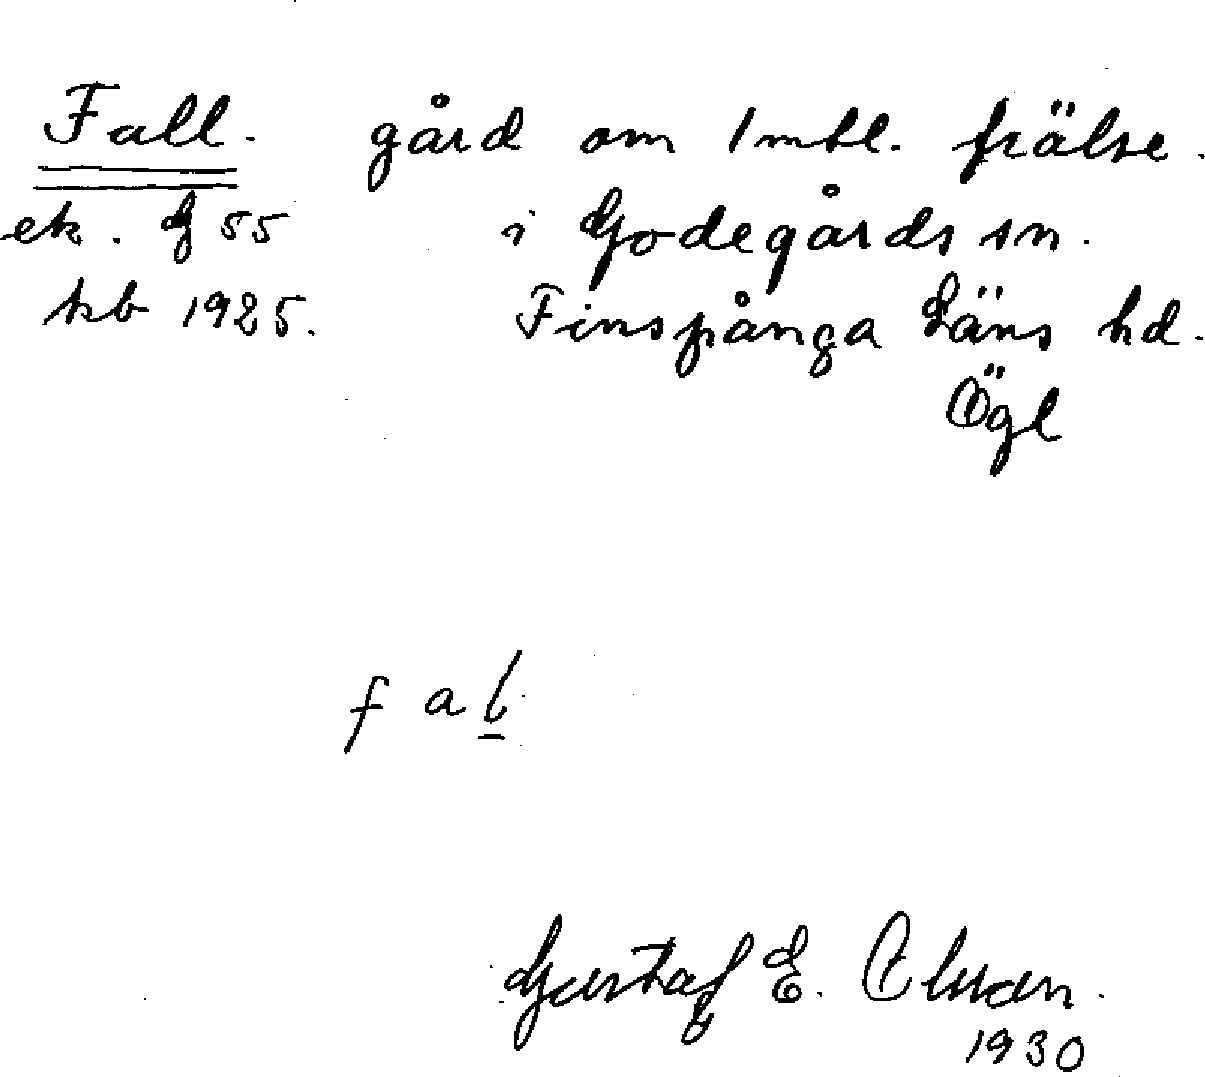 Fall. gård om 1 mtl. frälse.
ek. G 55 i Godegårds sn.
kb 1925. Finspånga Läns hd.
Ögl
f a l
Gustaf E. Olsson.
1930